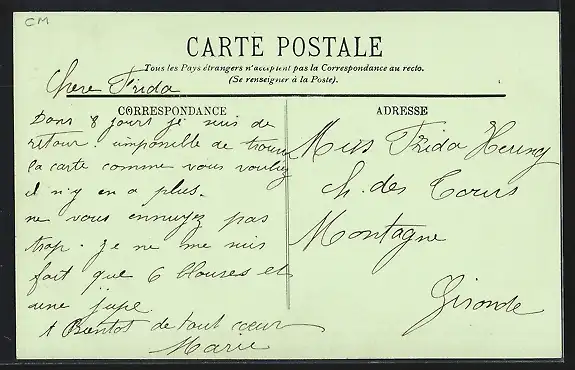 CM
CARTE POSTALE
Tous les Pays étrangers n'acceptent pas la Correspondance au recto.
(Se renseigner à la Poste).
Chere Frida
CORRESPONDANCE
Dans 8 jours je suis de
retour. impossible de trouver
la carte comme vous vouliez
il n'y en a plus.
ne vous ennuyez pas
trop. je ne me suis
fait que 6 blouses et
une jupe
A Bientot de tout cœur
Marie
ADRESSE
Miss Frida
ch. des Cours
Montagne
Gironde